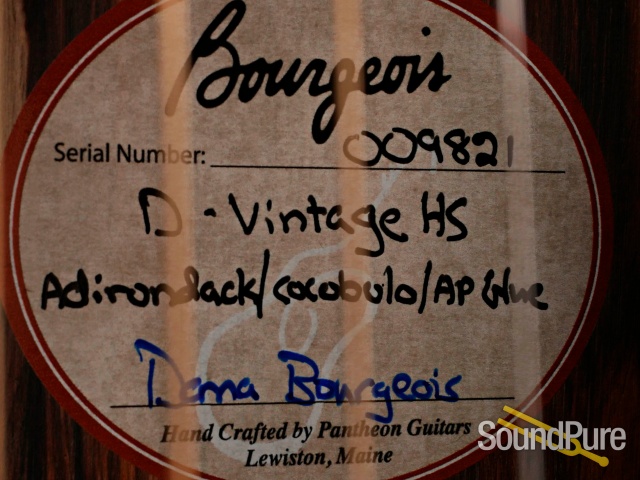 Bourgeois
Serial Number: 009821
D - Vintage HS
Adirondack/Cocobolo/AP Glue
Dana Bourgeois
Hand Crafted by Pantheon Guitars
Lewiston, Maine
SoundPure